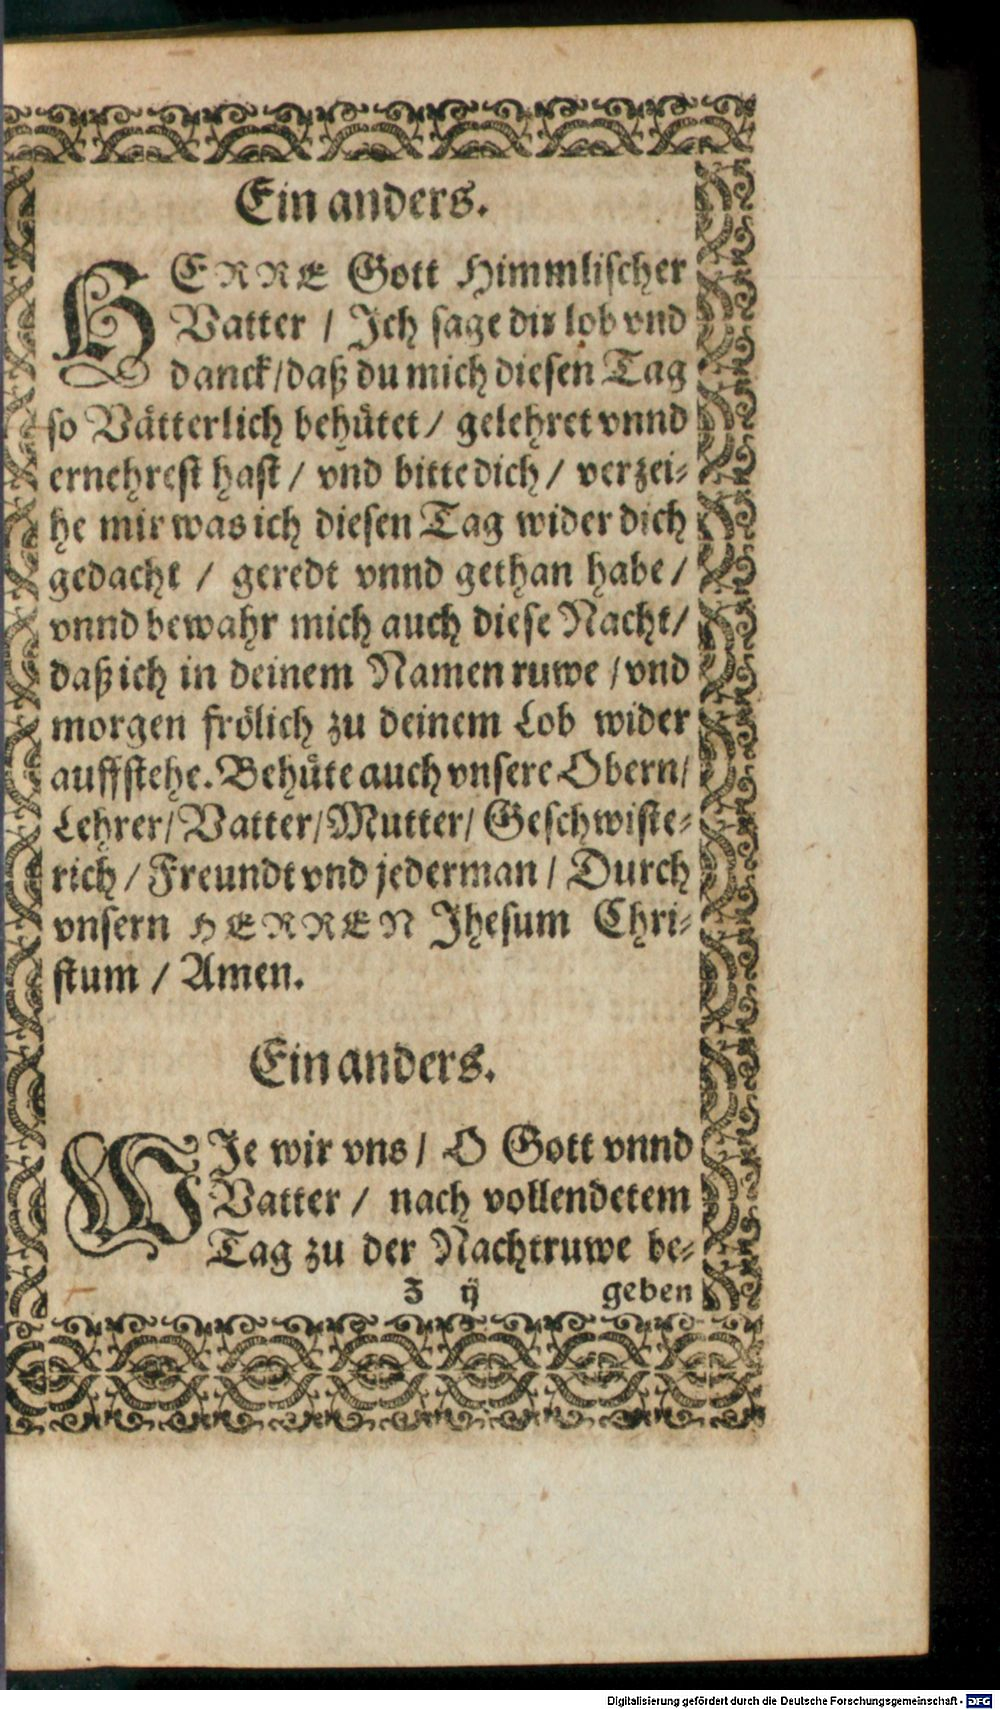 Ein anders.
HERRE Gott Himmlischer
Vatter / Jch sage dir lob vnd
danck / daß du mich diesen Tag
so Vätterlich behütet / gelehret vnnd
ernehrest hast / vnd bitte dich / verzei⸗
he mir was ich diesen Tag wider dich
gedacht / geredt vnnd gethan habe /
vnnd bewahr mich auch diese Nacht /
daß ich in deinem Namen ruwe / vnd
morgen frölich zu deinem Lob wider
auffstehe. Behüte auch vnsere Obern /
Lehrer / Vatter / Mutter / Geschwiste⸗
rich / Freundt vnd jederman / Durch
vnsern HERREN Jhesum Chri⸗
stum / Amen.
Ein anders.
WJe wir vns / O Gott vnnd
Vatter / nach vollendetem
Tag zu der Nachtruwe be⸗
Z ij geben
Digitalisierung gefördert durch die Deutsche Forschungsgemeinschaft - DFG